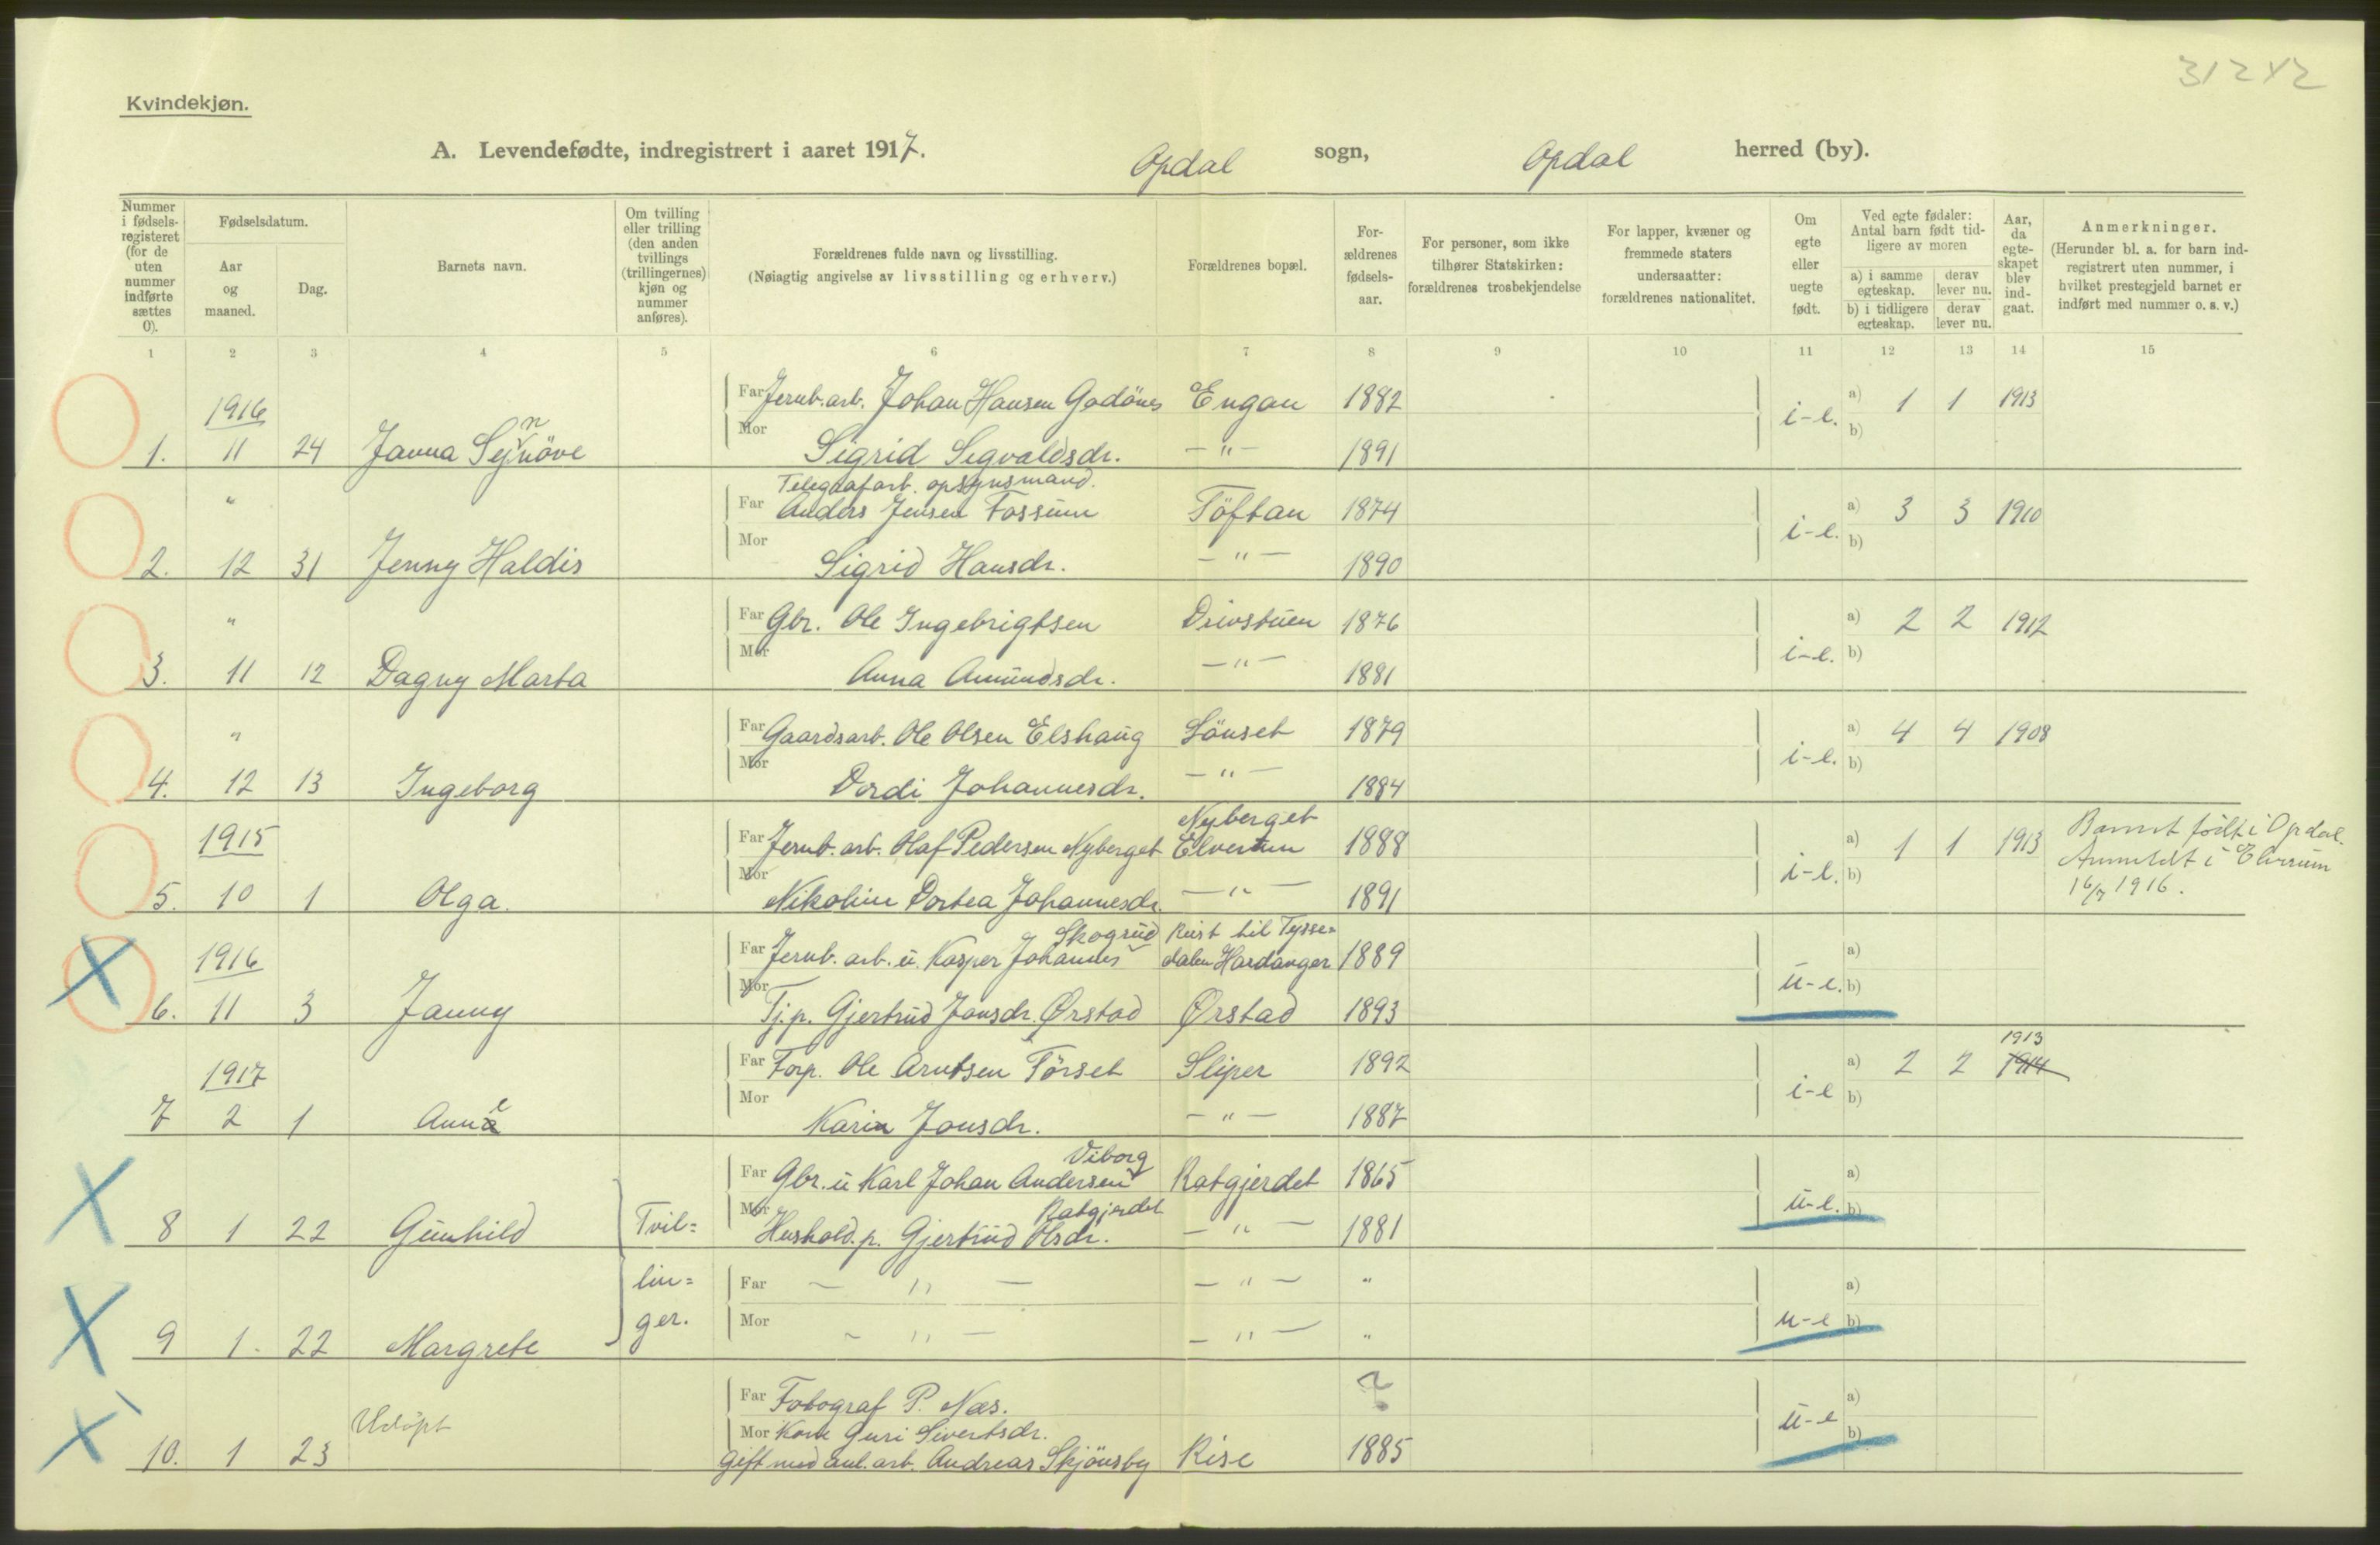 31242
Kvindekjøn.
A. Levendefødte, indregistrert i aaret 1917. Opdal sogn, Opdal herred (by).
Nummer i fødsels-registeret (for de uten nummer indførte sættes 0).
Fødselsdatum.
Aar og maaned.
Dag.
Barnets navn.
Om tvilling eller trilling (den anden tvillings (trillingernes) kjøn og nummer anføres).
Forældrenes fulde navn og livsstilling.
(Nøiagtig angivelse av livsstilling og erhverv.)
Forældrenes bopæl.
For-ældrenes fødsels-aar.
For personer, som ikke tilhører Statskirken: forældrenes trosbekjendelse
For lapper, kvæner og fremmede staters undersaatter: forældrenes nationalitet.
Om egte eller uegte født.
Ved egte fødsler: Antal barn født tid-ligere av moren
a) i samme egteskap.
derav lever nu.
b) i tidligere egteskap.
derav lever nu.
Aar, da egte-skapet blev ind-gaat.
Anmerkninger.
(Herunder bl. a. for barn ind-registrert uten nummer, i hvilket prestegjeld barnet er indført med nummer o. s. v.)
1 2 3 4 5 6 7 8 9 10 11 12 13 14 15
1916 Far Jernb. arb. Johan Hansen Godönes Engan 1882 i-e. a) 1 1 1913
n
1. 11 24 Janna Synöve Mor Sigrid Segvaldsdr. -"- 1891 b)
Telegrafarb. opsynsmand.
" Far Anders Jensen Fossum Töftan 1874 i-e. a) 3 3 1910
2. 12 31 Jenny Haldis Mor Sigrid Hansdr. -"- 1890 b)
" Far Gbr. Ole Ingebrigtsen Drivstuen 1876 i-e. a) 2 2 1912
3. 11 12 Dagny Marta Mor Anna Amundsdr. -"- 1881 b)
" Far Gaardsarb. Ole Olsen Elshaug Lönset 1879 i-e. a) 4 4 1908
4. 12 13 Ingeborg Mor Dordi Johannesdr. -"- 1884 b)
Nyberget
1915 Far Jernb. arb. Olaf Pedersen Nyberget Elverum 1888 i-e. a) 1 1 1913 Barnet födt i Opdal.
Anmeldt i Elverum
5. 10 1 Olga. Mor Nikoline Dortea Johannesdr. -"- 1891 b) 16/7 1916.
Skogrud Reist til Tysse=
1916 Far Jernb. arb. u. Kasper Johannes dalen Hardanger 1889 u-e. a)
6. 11 3 Janny Mor Tj.p. Gjertrud Jonsdr. Ørstad Ørstad 1893 b)
1913
1917 Far Forp. Ole Arntsen Törset Sliper 1892 i-e a) 2 2 1914
e
7 2 1 Anna Mor Karin Jonsdr. -"- 1887 b)
Viborg
Far Gbr. u Karl Johan Andersen Ratgjerdet 1865 u-e. a)
Ratgjerdet
8 1 22 Gunhild Tvil= Mor Hushold. p. Gjertrud Olsdr. -"- 1881 b)
lin= Far - " - -"- " u-e a)
9 1. 22 Margrete ger. Mor - " - -"- " b)
Far Fotograf P. Næs. ? u-e a)
Udöpt Mor Kone Guri Sivertsdr. b)
10. 1 23 Gift med anl. arb. Andreas Skjönsby Rise 1885